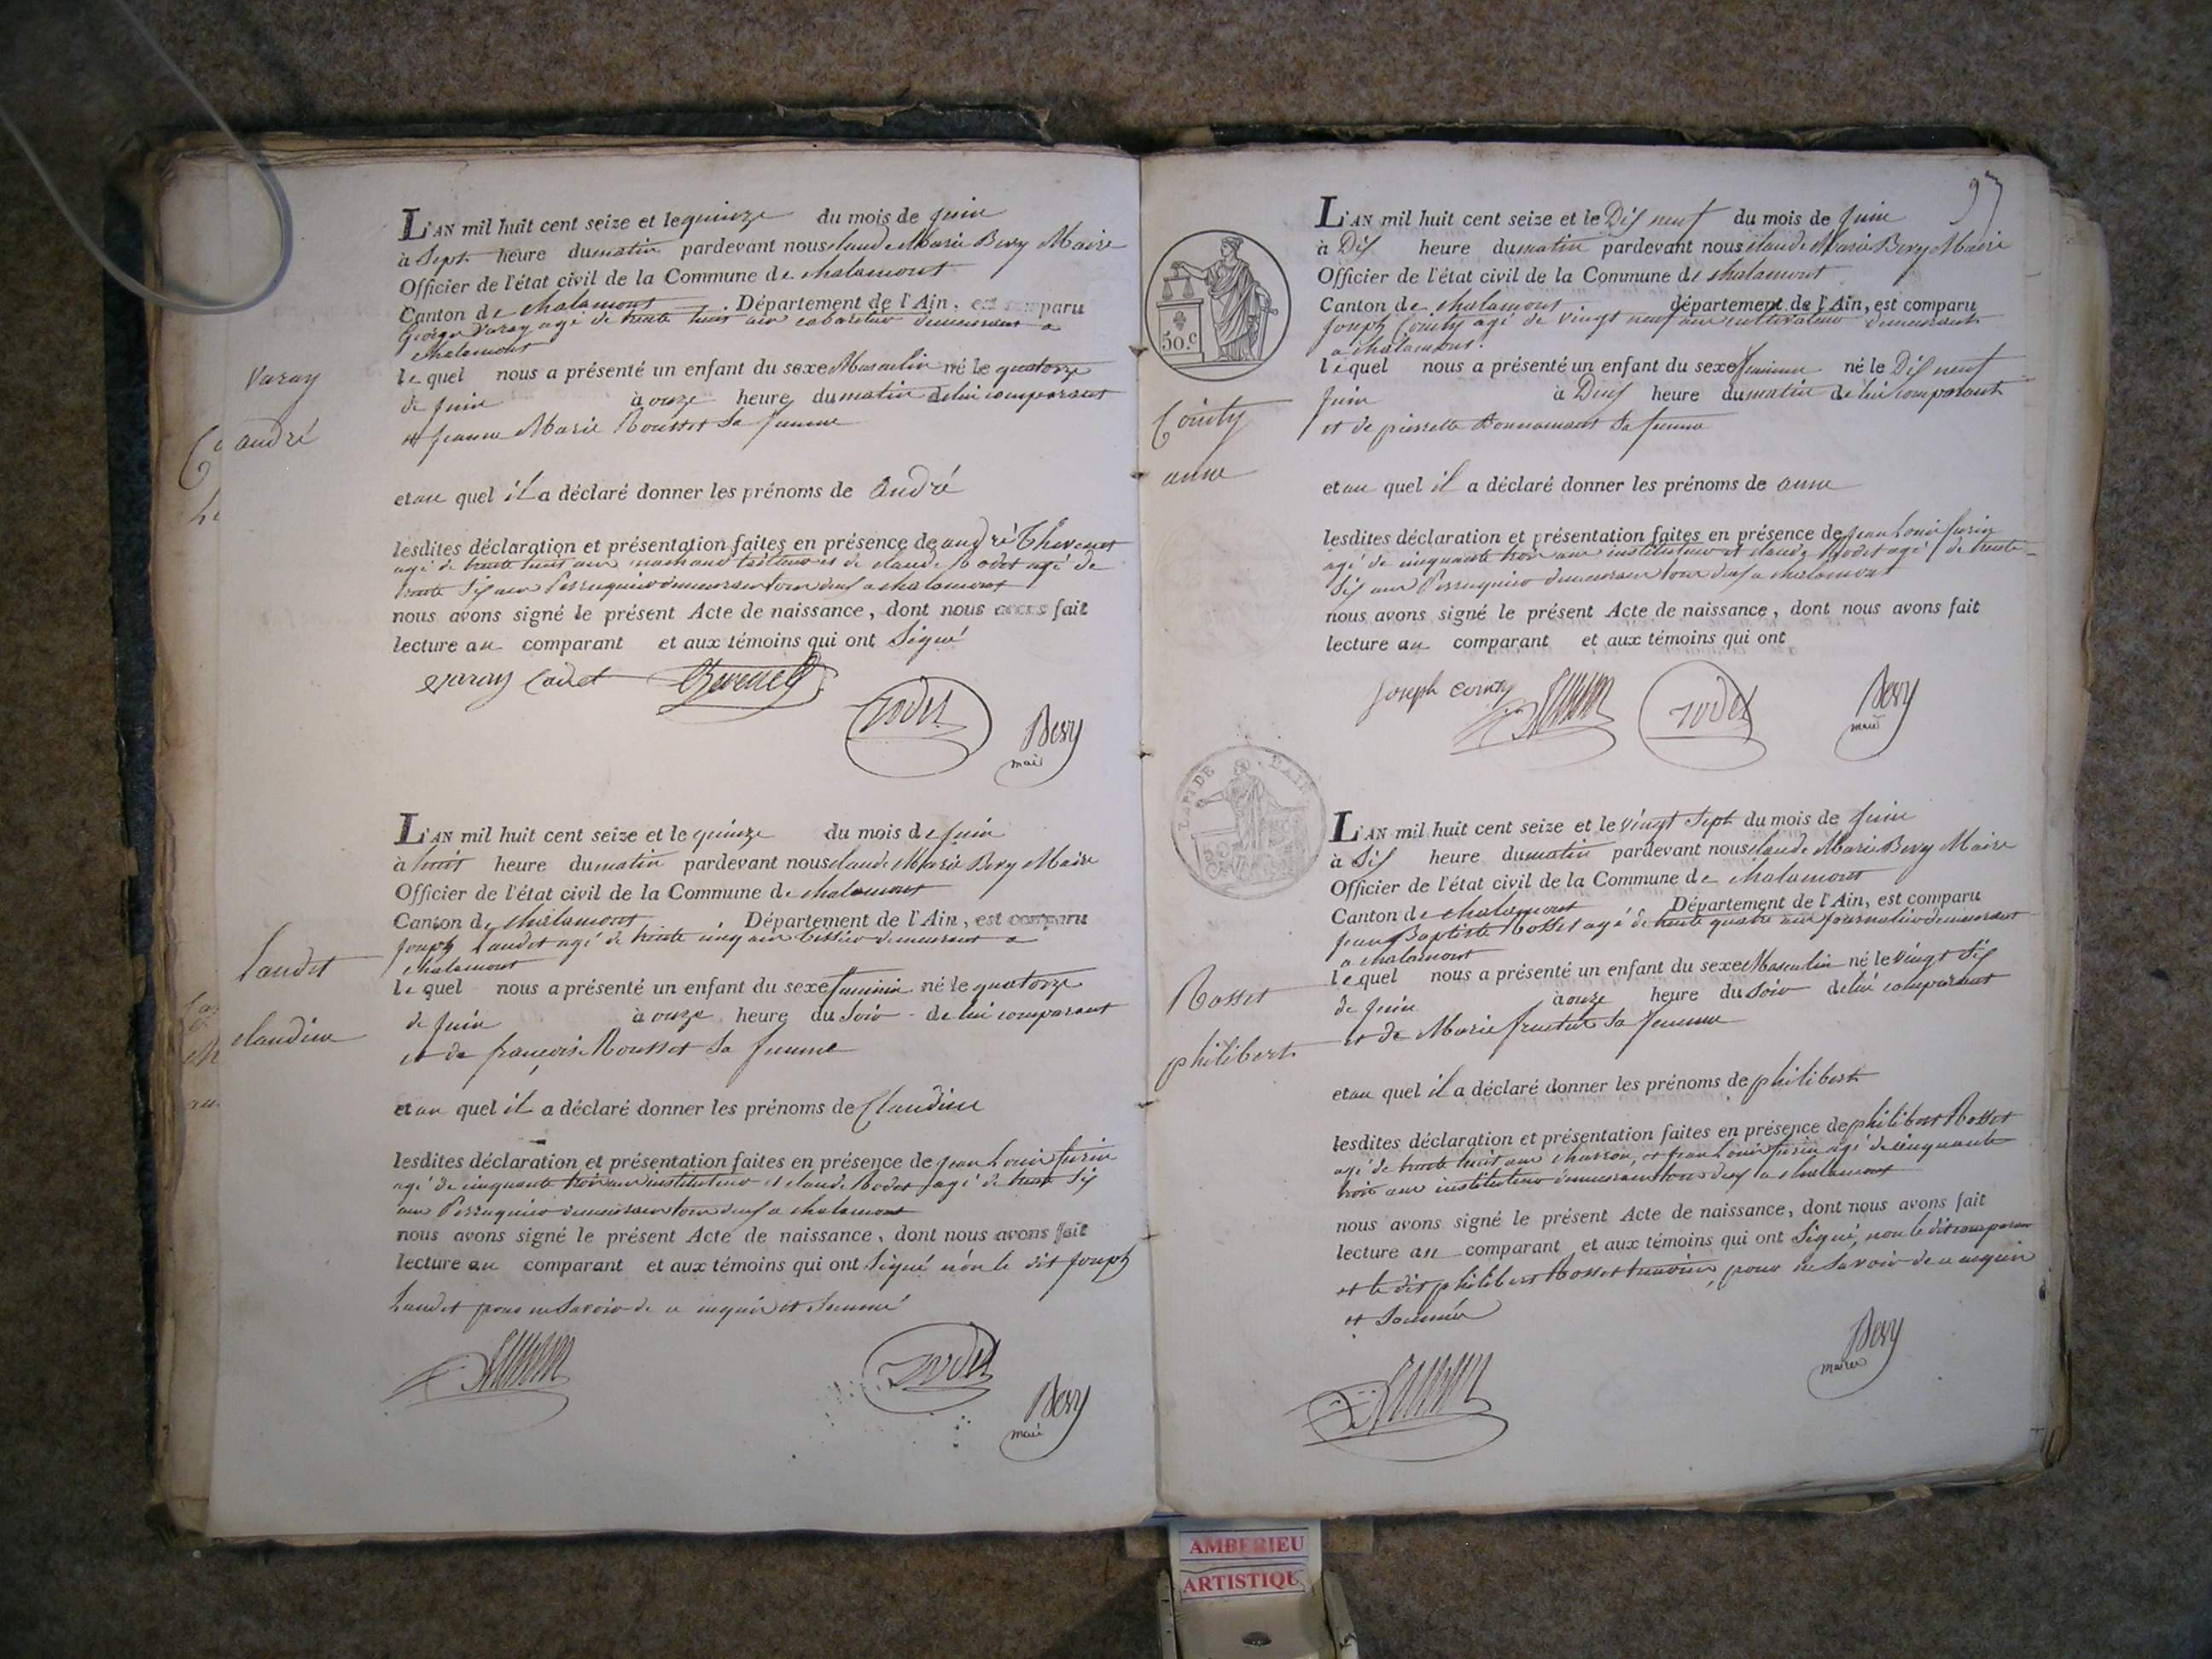 Varay
andré
L'AN mil huit cent seize et le quinze du mois de juin
à Sept heure du matin pardevant nous claude Marie Bevy Maire
Officier de l'état civil de la Commune de chalamont
Canton de chalamont. Département de l'Ain, est comparu
George Varay agé de trente huit ans cabaretier demeurant a
chalamont
lequel nous a présenté un enfant du sexe Masculin né le quatorze
de juin à onze heure du matin de lui comparant
et jeanne Marie Rousset Sa femme
et au quel il a déclaré donner les prénoms de André
lesdites déclaration et présentation faites en présence de andré Thevenet
agé de trente huit ans marchand et de claude Rodet agé de
trente Sis ans Perruquier demeurant tous deus a chalamont
nous avons signé le présent Acte de naissance, dont nous avons fait
lecture au comparant et aux témoins qui ont Signé
varay Cadet Thevenet
Rodet
Bevy
maire
Laudet
claudine
L'AN mil huit cent seize et le quinze du mois de juin
à huit heure du matin pardevant nous claude Marie Bevy Maire
Officier de l'état civil de la Commune de chalamont
Canton de chalamont. Département de l'Ain, est comparu
joseph Laudet agé de trente cinq ans tissier demeurant a
chalamont
lequel nous a présenté un enfant du sexe feminin né le quatorze
de juin à onze heure du Soir de lui comparant
et de françoise Rousset Sa femme
et au quel il a déclaré donner les prénoms de Claudine
lesdites déclaration et présentation faites en présence de jean Louis
agé de cinquante trois ans instituteur et claude Rodet agé de trente Sis
ans Perruquier demeurant tous deus a chalamont
nous avons signé le présent Acte de naissance, dont nous avons fait
lecture au comparant et aux témoins qui ont Signé non le dit joseph
Laudet pour ne Savoir de ce enquis et Sommé
Rodet
Bevy
maire
97
50.c
Cointy
anne
L'AN mil huit cent seize et le Dis neuf du mois de juin
à Dis heure du matin pardevant nous claude Marie Bevy Maire
Officier de l'état civil de la Commune de chalamont
Canton de chalamont. département de l'Ain, est comparu
joseph Cointy agé de vingt neuf ans cultivateur demeurant
a chalamont.
lequel nous a présenté un enfant du sexe feminin né le Dis neuf
juin à Deus heure du matin de lui comparant
et de pierrette Bonnamant Sa femme
et au quel il a déclaré donner les prénoms de anne
lesdites déclaration et présentation faites en présence de jean Louis
agé de cinquante trois ans instituteur et claude Rodet agé de trente
Sis ans Perruquier demeurant tous deus a chalamont
nous avons signé le présent Acte de naissance, dont nous avons fait
lecture au comparant et aux témoins qui ont
joseph Cointy
Rodet
Bevy
maire
Rosset
philibert
L'AN mil huit cent seize et le vingt Sept du mois de juin
à Sis heure du matin pardevant nous claude Marie Bevy Maire
Officier de l'état civil de la Commune de chalamont
Canton de chalamont Département de l'Ain, est comparu
jean Baptiste Rosset agé de trente quatre ans journalier demeurant
a chalamont
lequel nous a présenté un enfant du sexe Masculin né le vingt Sis
de juin à onze heure du Soir de lui comparant
et de Marie Sa femme
et au quel il a déclaré donner les prénoms de philibert
lesdites déclaration et présentation faites en présence de philibert Rosset
agé de trente huit ans charron, et jean Louis agé de cinquante
trois ans instituteur demeurant tous deus a chalamont
nous avons signé le présent Acte de naissance, dont nous avons fait
lecture au comparant et aux témoins qui ont Signé, non le dit comparant
et le dit philibert Rosset temoin, pour ne Savoir de ce enquis
et Sommés
Bevy
maire
AMBERIEU
ARTISTIQUE